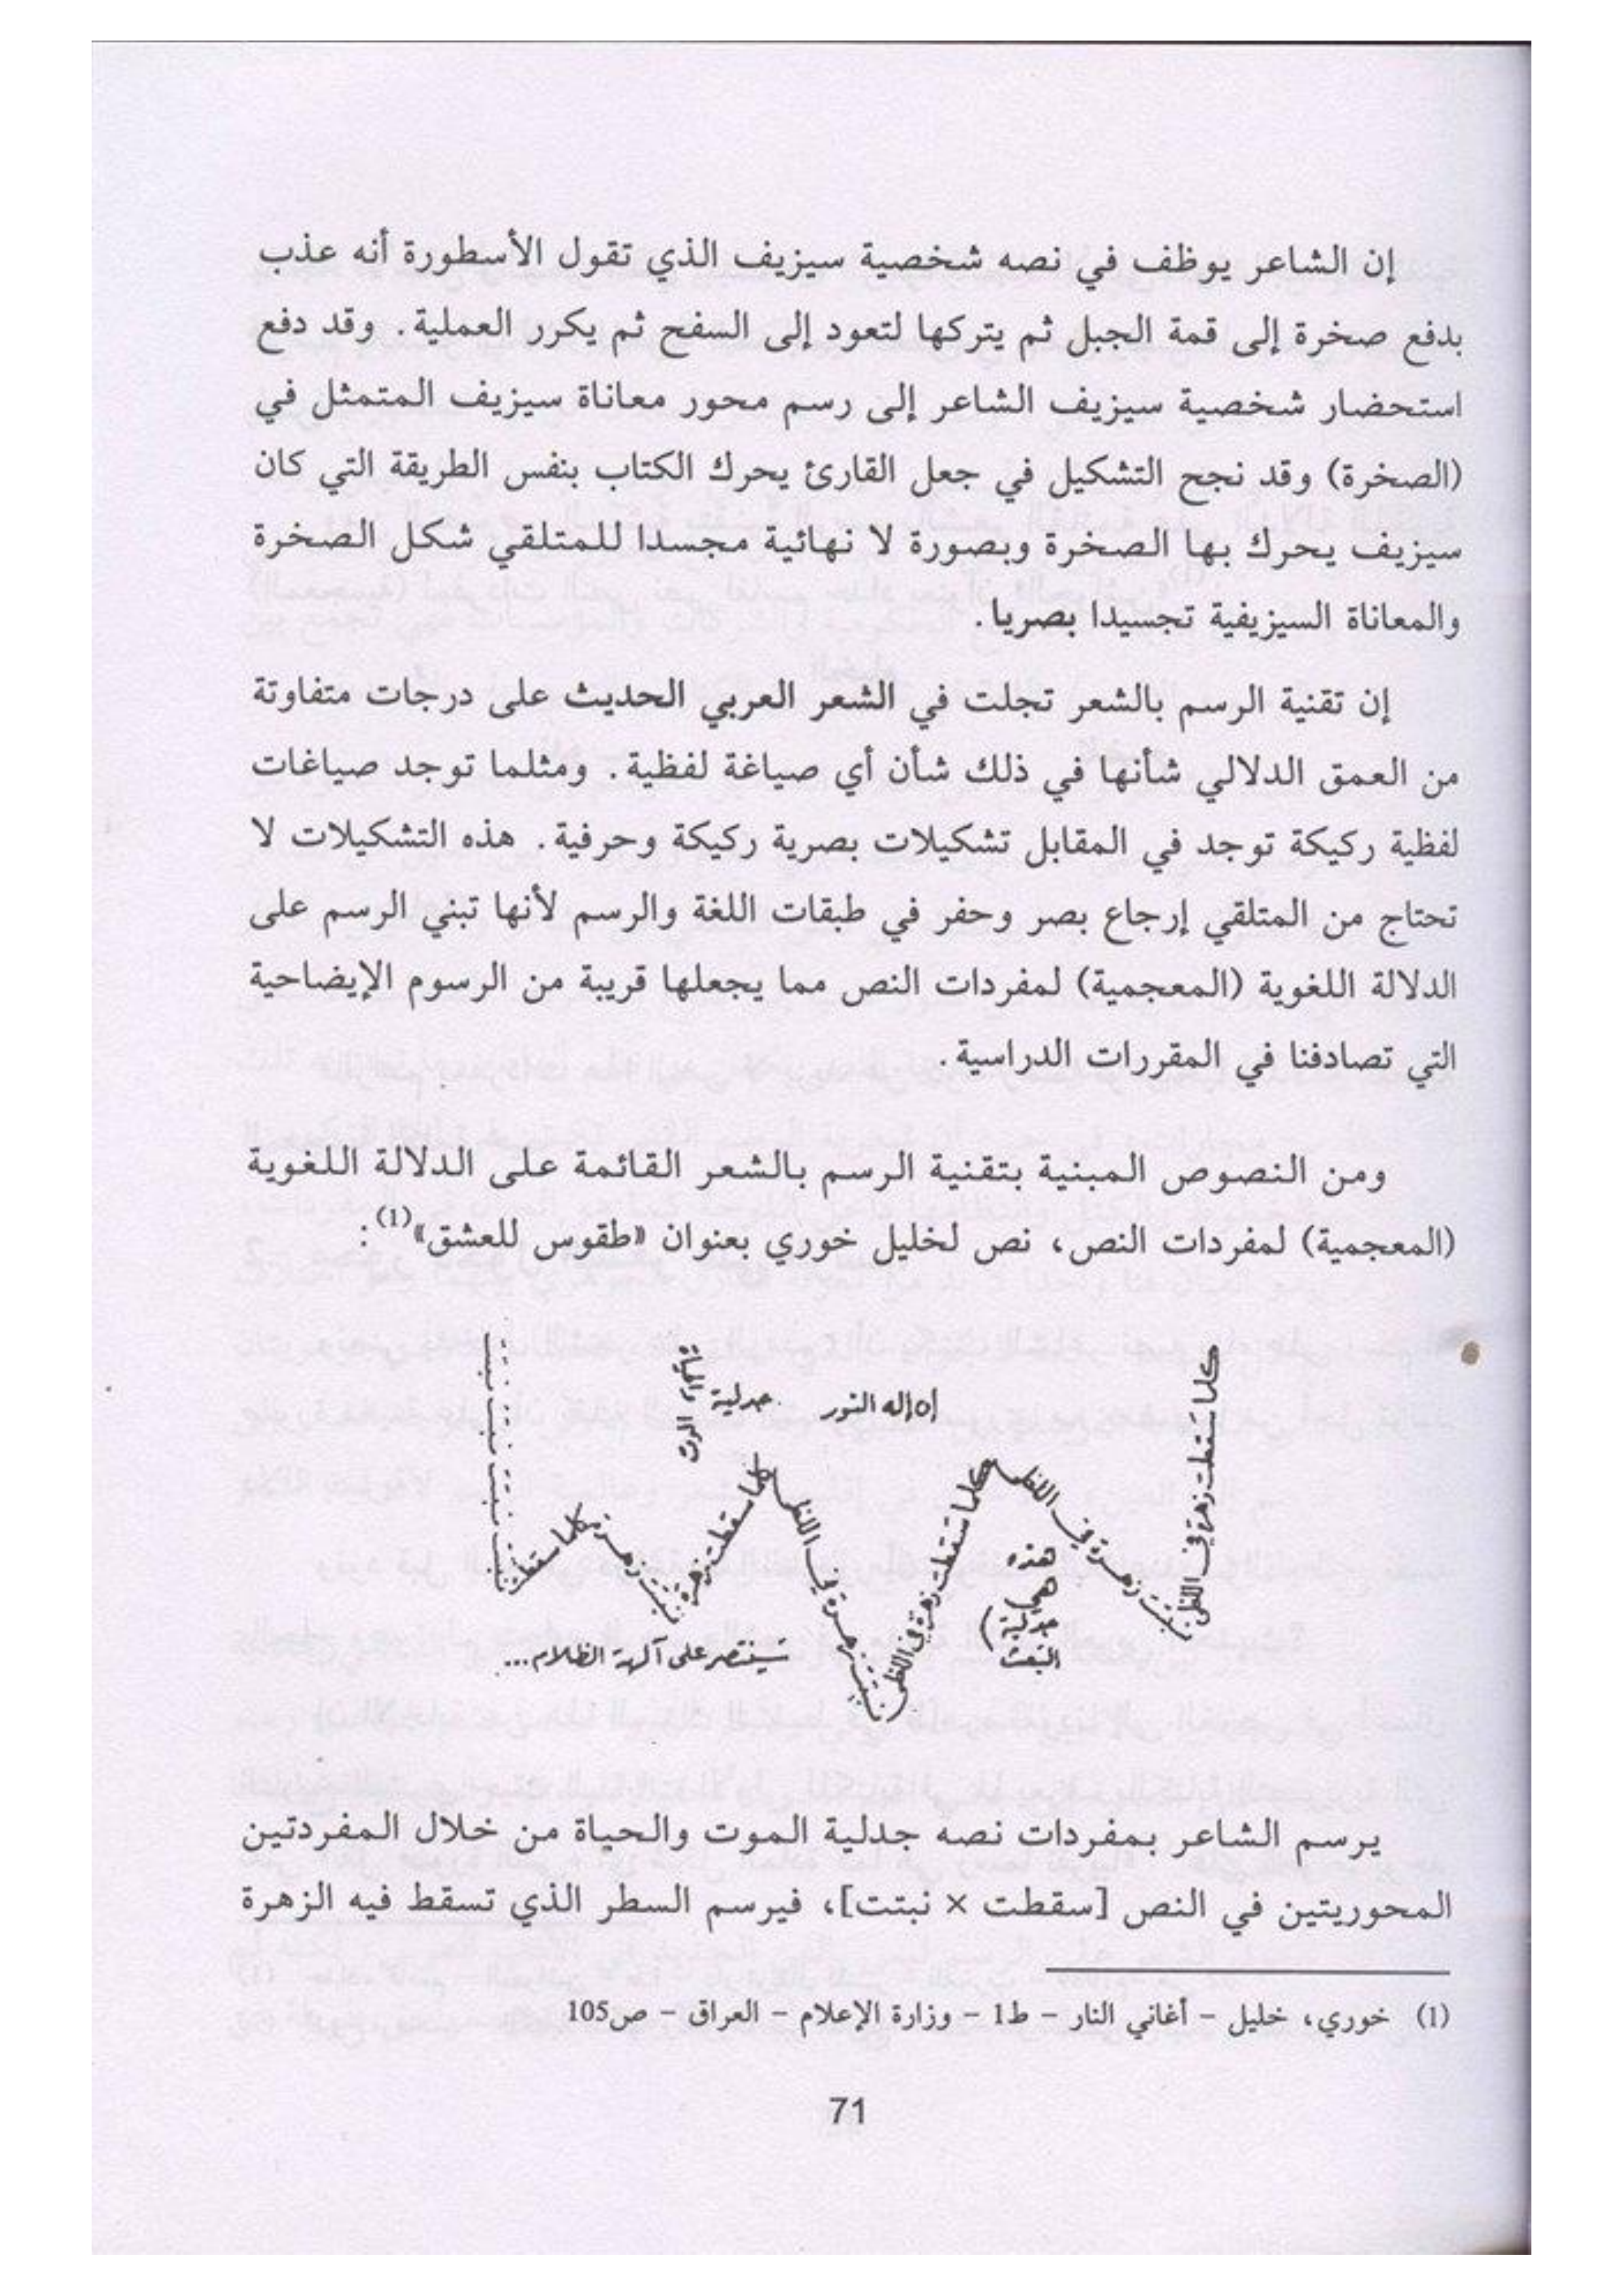 إن الشاعر يوظف في نصه شخصية سيزيف الذي تقول الأسطورة أنه عذب
بدفع صخرة إلى قمة الجبل ثم يتركها لتعود إلى السفح ثم يكرر العملية. وقد دفع
استحضار شخصية سيزيف الشاعر إلى رسم محور معاناة سيزيف المتمثل في
(الصخرة) وقد نجح التشكيل في جعل القارئ يحرك الكتاب بنفس الطريقة التي كان
سيزيف يحرك بها الصخرة وبصورة لا نهائية مجسدا للمتلقي شكل الصخرة
والمعاناة السيزيفية تجسيدا بصريا.
إن تقنية الرسم بالشعر تجلت في الشعر العربي الحديث على درجات متفاوتة
من العمق الدلالي شأنها في ذلك شأن أي صياغة لفظية. ومثلما توجد صياغات
لفظية ركيكة توجد في المقابل تشكيلات بصرية ركيكة وحرفية. هذه التشكيلات لا
تحتاج من المتلقي إرجاع بصر وحفر في طبقات اللغة والرسم لأنها تبني الرسم على
الدلالة اللغوية (المعجمية) لمفردات النص مما يجعلها قريبة من الرسوم الإيضاحية
التي تصادفنا في المقررات الدراسية.
ومن النصوص المبنية بتقنية الرسم بالشعر القائمة على الدلالة اللغوية
(المعجمية) لمفردات النص، نص لخليل خوري بعنوان «طقوس للعشق»(1):
كلما سقطت زهرة في اللظى
نبتت زهرة في اللظى
هذه
هي
جدلية
البعث
كلما سقطت زهرة في اللظى
نبتت زهرة في اللظى
إن إله النور
جدلية
الموت والحياة
كلما سقطت زهرة
نبتت زهرة
كلما سقطت
نبتت نبتت نبتت نبتت
سينتصر على آلهة الظلام...
يرسم الشاعر بمفردات نصه جدلية الموت والحياة من خلال المفردتين
المحوريتين في النص [سقطت × نبتت]، فيرسم السطر الذي تسقط فيه الزهرة
(1) خوري، خليل - أغاني النار - ط1 - وزارة الإعلام - العراق - ص105
71